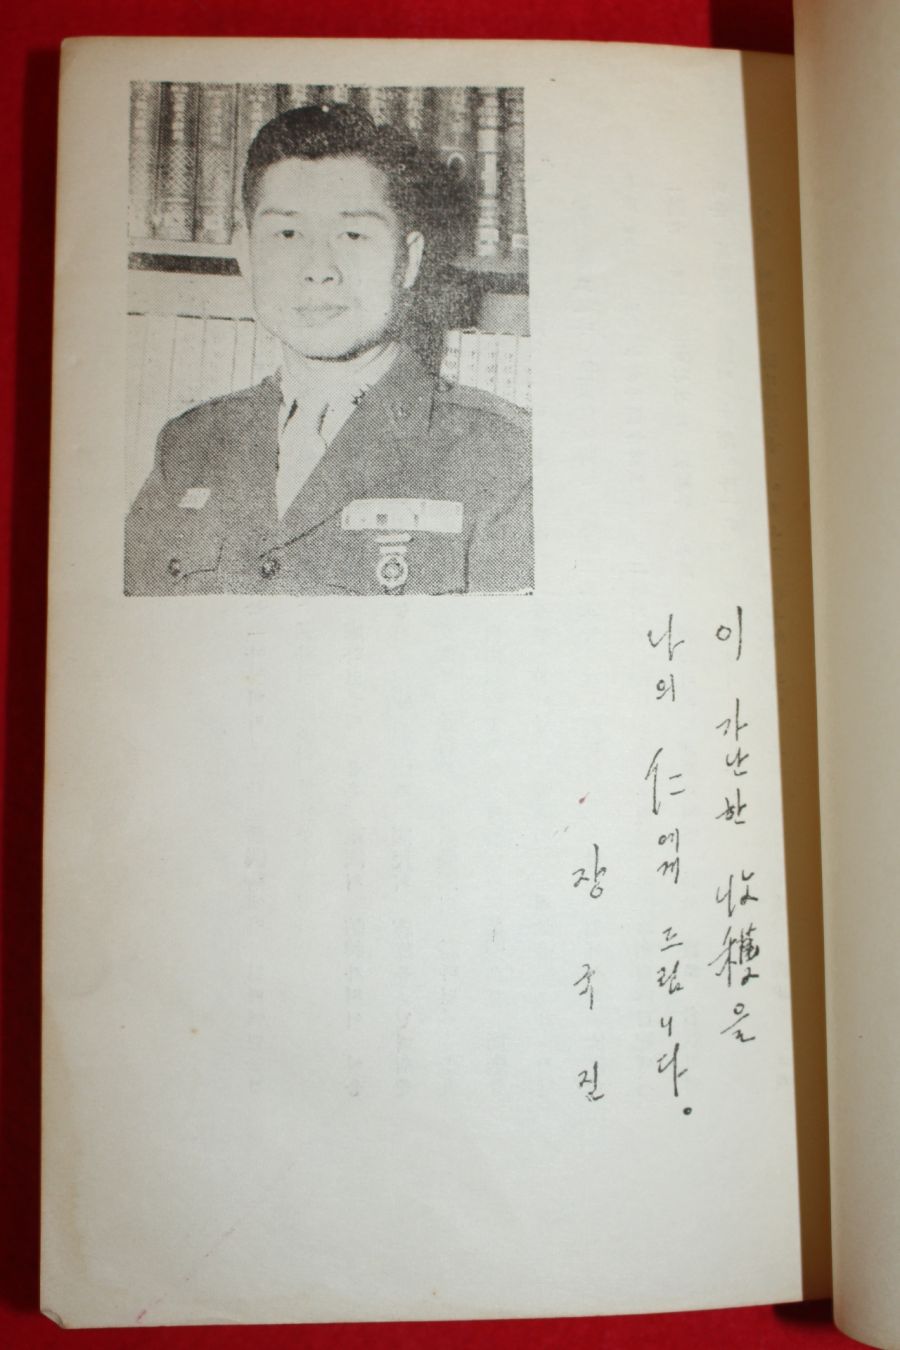 이 가난한 收穫을
나의 仁에게 드립니다。
장국진